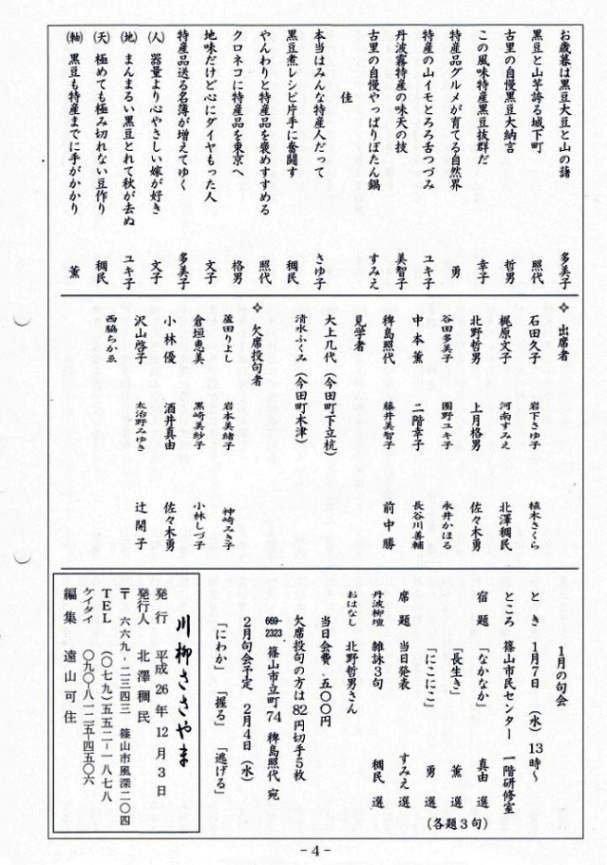 お歳暮は黒豆大豆と山の諸　多美子
黒豆と山芋誇る城下町　照代
古里の自慢黒豆大納言　哲男
この風味特産黒豆抜群だ　幸子
特産品グルメが育てる自然界　勇
特産の山イモとろろ舌つづみ　ユキ子
丹波霧特産の味天の技　美智子
古里の自慢やっぱりぼたん鍋　すみえ
佳
本当はみんな特産人だって　さゆ子
黒豆煮レシピ片手に奮闘す　稠民
やんわりと特産品を褒めすすめる　照代
クロネコに特産品を東京へ　格男
地味だけど心にダイヤもった人　文子
特産品送る名簿が増えてゆく　多美子
(人)　器量より心やさしい嫁が好き　文子
(地)　まんまるい黒豆とれて秋が去ぬ　ユキ子
(天)　極めても極み切れない豆作り　稠民
(軸)　黒豆も特産までに手がかかり　薫
❖　出席者
石田久子　岩下さゆ子　植木さくら
梶原文子　河南すみえ　北澤稠民
北野哲男　上月格男　佐々木勇
谷田多美子　園野ユキ子　永井かほる
中本薫　二階幸子　長谷川善輔
稗島照代　藤井美智子　前中勝
見学者
大上几代（今田町下立杭）
清水ふくみ（今田町木津）
❖　欠席投句者
蘆田りよし　岩本美緒子　神崎みき子
倉垣恵美　黒崎美紗子　小林しづ子
小林優　酒井真由　佐々木勇
沢山啓子　太治野みゆき　辻閑子
西脇ちかゑ
1月の句会
とき　1月7日（水）13時～
ところ　篠山市民センター　一階研修室
宿題　「なかなか」　真由　選
「長生き」　薫　選
「にこにこ」　勇　選
(各題3句)
席題　当日発表　すみえ　選
丹波柳壇　雑詠3句　稠民　選
おはなし　北野哲男さん
当日会費　五〇〇円
欠席投句の方は82円切手5枚
669-2323　篠山市立町74　稗島照代　宛
2月句会予定　2月4日（水）
「にわか」「握る」「逃げる」
川柳ささやま
発行　平成26年12月3日
発行人　北澤稠民
〒六六九-二三四三　篠山市風深二〇四
TEL（〇七九）五五二-一八七八
ケイタイ　〇九〇-八一二五-四五〇六
編集　遠山可住
-4-